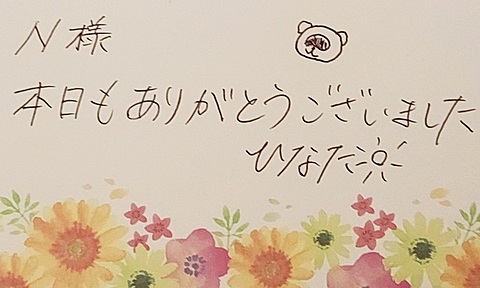 N様
本日もありがとうございました
ひなた